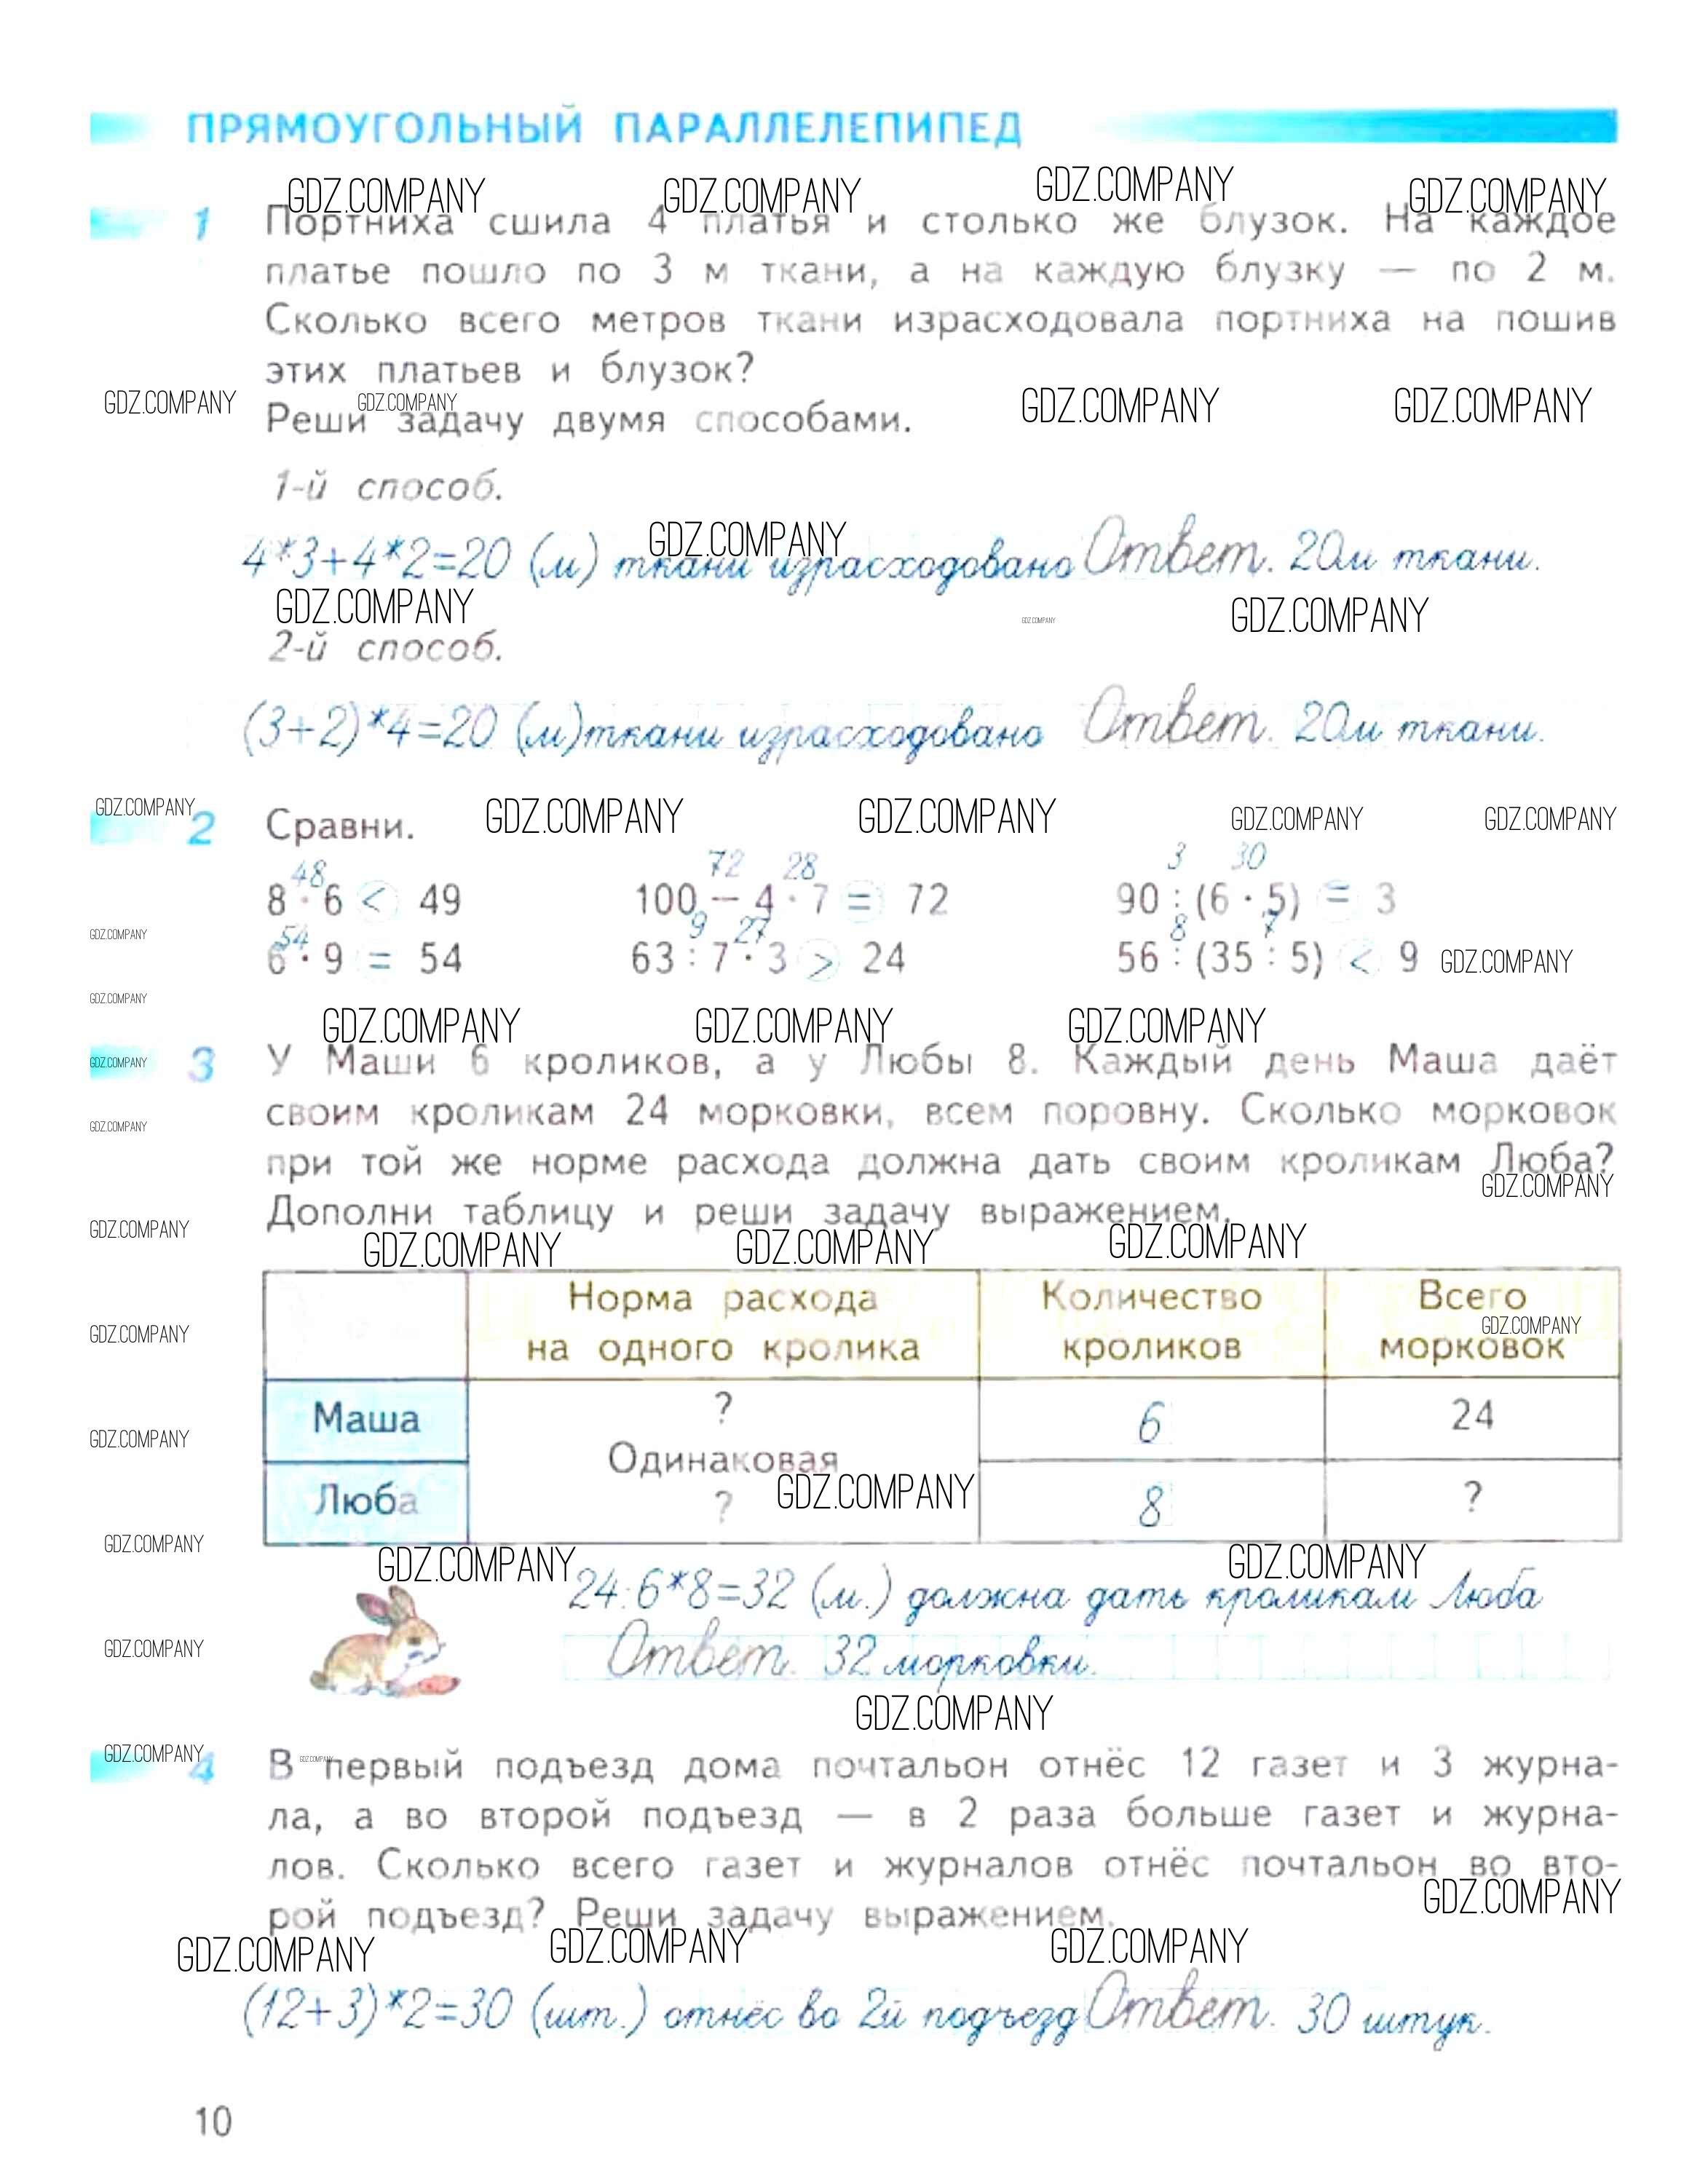 ПРЯМОУГОЛЬНЫЙ ПАРАЛЛЕЛЕПИПЕД
GDZ.COMPANY GDZ.COMPANY GDZ.COMPANY GDZ.COMPANY
1 Портниха сшила 4 платья и столько же блузок. На каждое
платье пошло по 3 м ткани, а на каждую блузку — по 2 м.
Сколько всего метров ткани израсходовала портниха на пошив
этих платьев и блузок?
GDZ.COMPANY GDZ.COMPANY GDZ.COMPANY GDZ.COMPANY
Реши задачу двумя способами.
1-й способ.
GDZ.COMPANY
4*3+4*2=20 (м) ткани израсходовано Ответ. 20м ткани.
GDZ.COMPANY GDZ.COMPANY GDZ.COMPANY
2-й способ.
(3+2)*4=20 (м) ткани израсходовано Ответ. 20м ткани.
GDZ.COMPANY GDZ.COMPANY GDZ.COMPANY GDZ.COMPANY GDZ.COMPANY
2 Сравни.
48 72 28 3 30
8 · 6 < 49 100 − 4 · 7 = 72 90 : (6 · 5) = 3
54 9 27 8 7
6 · 9 = 54 63 : 7 · 3 > 24 56 : (35 : 5) < 9 GDZ.COMPANY
GDZ.COMPANY
GDZ.COMPANY
GDZ.COMPANY GDZ.COMPANY GDZ.COMPANY
GDZ.COMPANY 3 У Маши 6 кроликов, а у Любы 8. Каждый день Маша даёт
своим кроликам 24 морковки, всем поровну. Сколько морковок
GDZ.COMPANY
при той же норме расхода должна дать своим кроликам Люба?
GDZ.COMPANY
Дополни таблицу и реши задачу выражением.
GDZ.COMPANY GDZ.COMPANY GDZ.COMPANY GDZ.COMPANY
Норма расхода Количество Всего
GDZ.COMPANY GDZ.COMPANY
на одного кролика кроликов морковок
Маша ? 6 24
GDZ.COMPANY Одинаковая
GDZ.COMPANY
Люба ? 8 ?
GDZ.COMPANY GDZ.COMPANY GDZ.COMPANY
24:6*8=32 (м.) должна дать кроликам Люба
GDZ.COMPANY Ответ. 32 морковки.
GDZ.COMPANY
GDZ.COMPANY GDZ.COMPANY
4 В первый подъезд дома почтальон отнёс 12 газет и 3 журна-
ла, а во второй подъезд — в 2 раза больше газет и журна-
лов. Сколько всего газет и журналов отнёс почтальон во вто-
GDZ.COMPANY
рой подъезд? Реши задачу выражением.
GDZ.COMPANY GDZ.COMPANY GDZ.COMPANY
(12+3)*2=30 (шт.) отнёс во 2й подъезд Ответ. 30 штук.
10